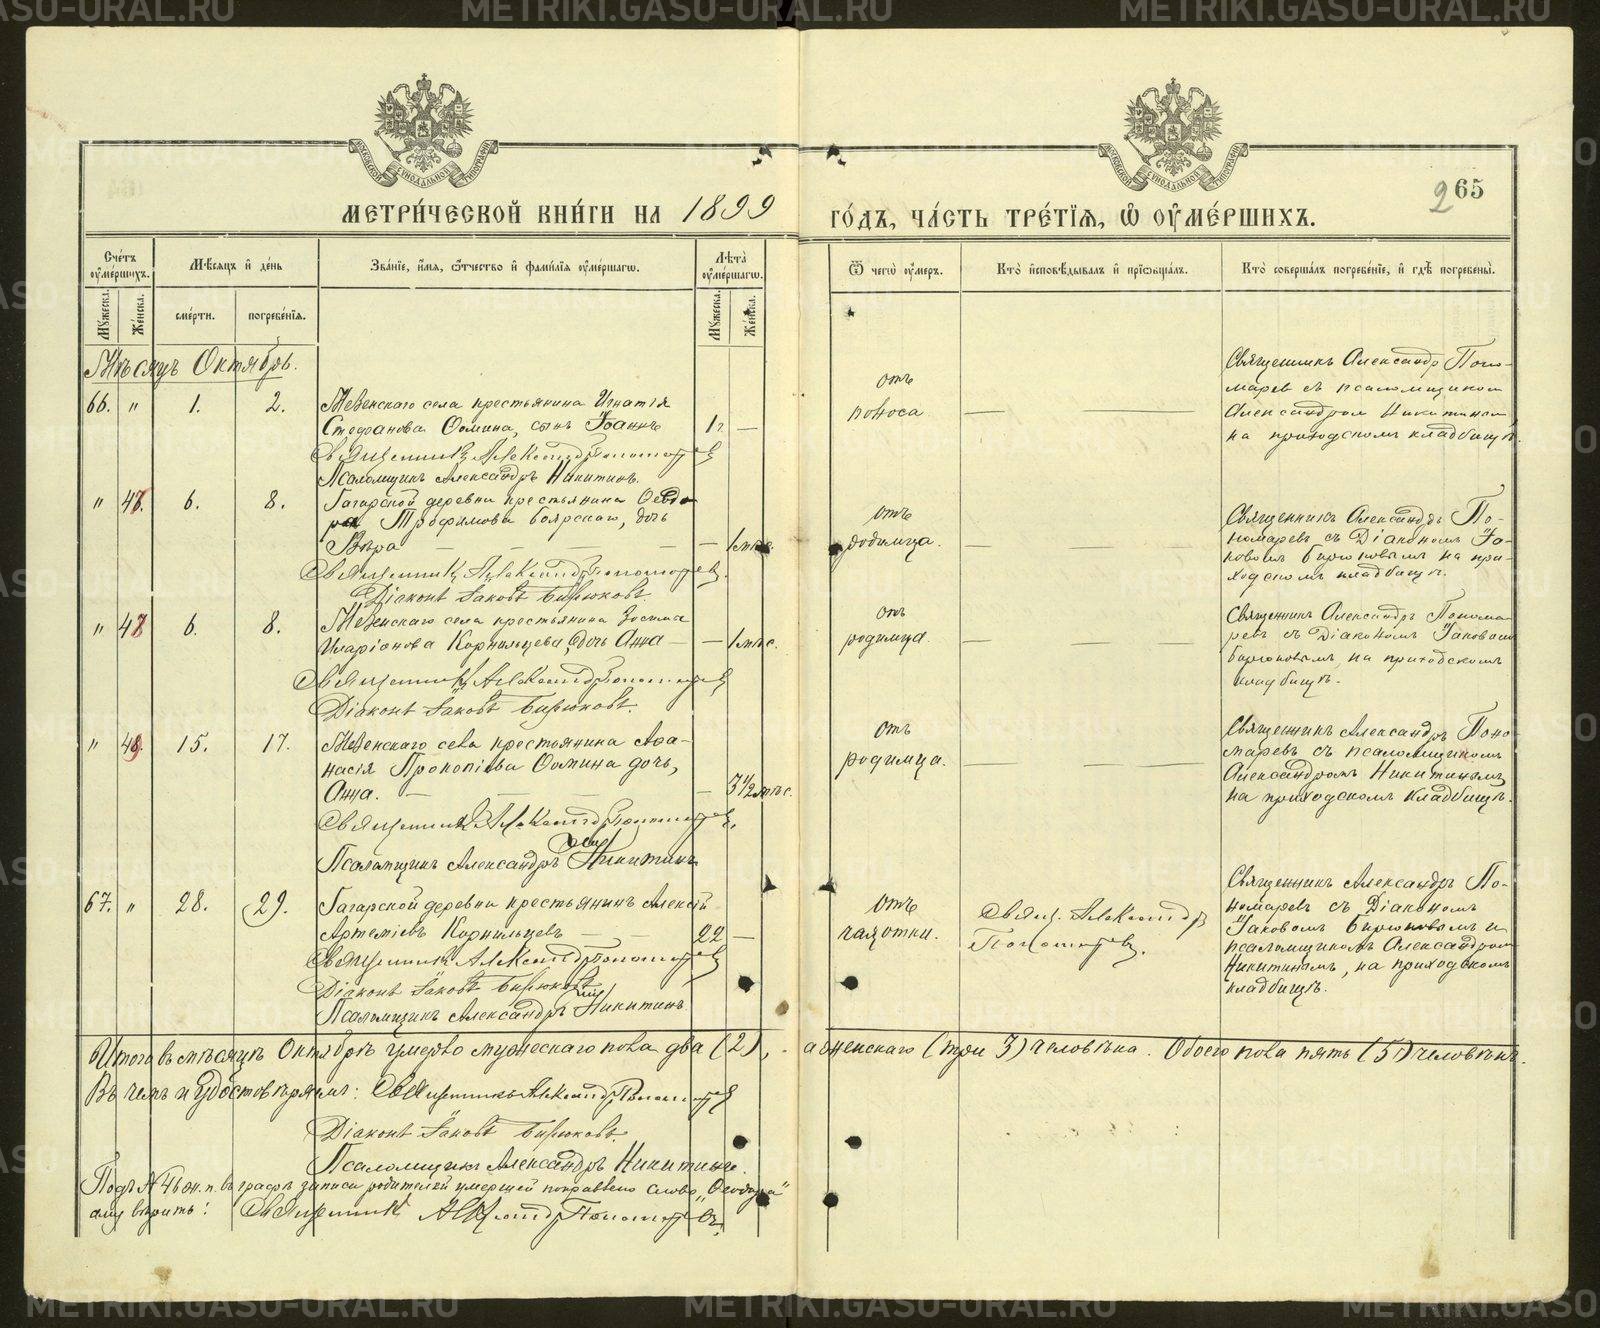 METRIKI.GASU-URAL.RU
МЕТРИ́ЧЕСКОЙ КНИ́ГИ НА 1899 ГО́ДЪ, ЧА́СТЬ ТРЕ́ТІЯ, Ѡ ОУ҆МЕ́РШИХЪ.
265
МОСКОВСКОЙ СѴНОДАЛЬНОЙ ТИПОГРАФІИ
Сче́тъ оу҆ме́ршихъ.
Мѣ́сяцъ и҆ де́нь
Зва́нїе, и҆́мя, ѻ҆́тчество и҆ фами́лїя оу҆ме́ршагѡ.
Лѣ́та оу҆ме́ршагѡ.
Ѿ чегѡ̀ оу҆́меръ.
Кто̀ и҆сповѣ́дывалъ и҆ прїѡбща́лъ.
Кто̀ соверша́лъ погребе́нїе, и҆ гдѣ̀ погребены̀.
Му́жеска.
Же́нска.
сме́рти.
погребе́нїя.
Му́жеска.
Же́нска.
Мѣсяцъ Октябрь.
66. " 1. 2. Мезенскаго села крестьянина Игнатія
Стефанова Ѳомина, сынъ Іоаннъ 1 г. —
Священникъ Александръ Пономаревъ
Псаломщикъ Александръ Никитинъ.
отъ
поноса
Священникъ Александръ Поно-
маревъ съ псаломщикомъ
Александромъ Никитинымъ,
на приходскомъ кладбищѣ.
" 46. 6. 8. Гагарской деревни крестьянина Ѳеодо-
ра Трофимова Боярскаго, дочь
Вѣра — — — — — 1 мѣс.
Священникъ Александръ Пономаревъ.
Діаконъ Іаковъ Бирюковъ.
отъ
родимца.
Священникъ Александръ По-
номаревъ съ Діакономъ Іа-
ковомъ Бирюковымъ на при-
ходскомъ кладбищѣ.
" 47 6. 8. Мезенскаго села крестьянина Зосима
Иларіонова Корнильцева, дочь Анна — — 1 мѣс.
Священникъ Александръ Пономаревъ
Діаконъ Іаковъ Бирюковъ.
отъ
родимца
Священникъ Александръ Понома-
ревъ съ Діакономъ Іаковомъ
Бирюковымъ, на приходскомъ
кладбищѣ.
" 48. 15. 17. Мезенскаго села крестьянина Аѳа-
насія Прокопіева Ѳомина дочь,
Анна. — — — — 3 1/2 мѣс.
Священникъ Александръ Пономаревъ.
Псаломщикъ Александръ Никитинъ
отъ
родимца.
Священникъ Александръ Поно-
маревъ съ псаломщикомъ
Александромъ Никитинымъ,
на приходскомъ кладбищѣ.
67. " 28. 29. Гагарской деревни крестьянинъ Алексѣй
Артеміевъ Корнильцевъ — — 22 —
Священникъ Александръ Пономаревъ
Діаконъ Іаковъ Бирюковъ
Псаломщикъ Александръ Никитинъ
отъ
чахотки.
Свящ. Александръ
Пономаревъ.
Священникъ Александръ По-
номаревъ съ Діакономъ
Іаковомъ Бирюковымъ и
псаломщикомъ Александромъ
Никитинымъ, на приходскомъ
кладбищѣ.
Итого въ мѣсяцѣ Октябрѣ умерло мужескаго пола два (2), а женскаго (три 3) человѣка. Обоего пола пять (5) человѣкъ.
Въ чемъ и удостовѣряемъ: Священникъ Александръ Пономаревъ
Діаконъ Іаковъ Бирюковъ.
Псаломщикъ Александръ Никитинъ.
Подъ № 46 ж. п. въ графѣ записи родителей умершей поправлено слово „Ѳеодора"
ему вѣрить: Священникъ Александръ Пономаревъ.